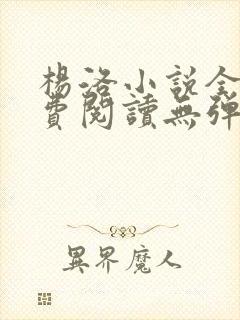 楊洛小說全
費閱讀無彈
異界魔人